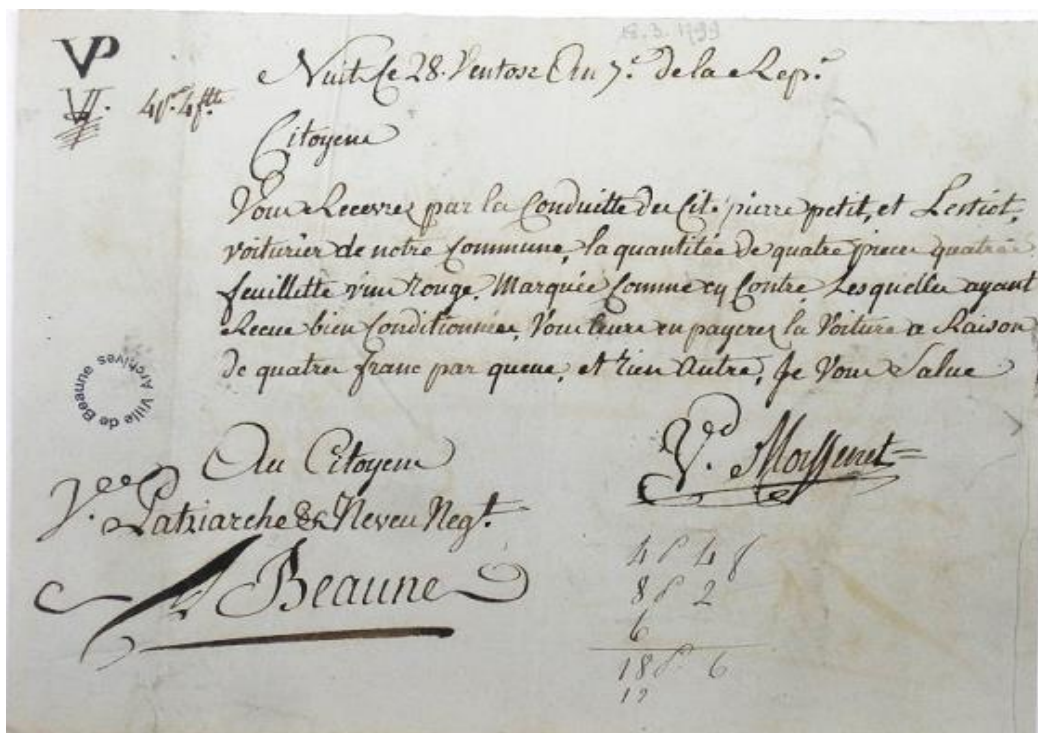 18.3.1799
VP
VI. 4 ps. 4 ftte
Nuit Ce 28. Ventose An 7.e De la Rep.e
Citoyens
Vous Recevrez par la Conduitte des Cit. pierre petit, et Lestiot,
voiturier de notre Commune, la quantitée de quatre pieces quatres
feuillette vins rouge, Marquée Comme en Contre Lesquelles ayant
Recue bien Conditionnées, Vous leurs en payerez la Voiture a Raison
de quatres franc par queue, et rien Autre, Je Vous Salue
Archives Ville de Beaune
Au Citoyens
Patriarche & Neveu Negt.
Beaune
Massenet
4 p 4 f
8 p 2
6
18 p. 6
12